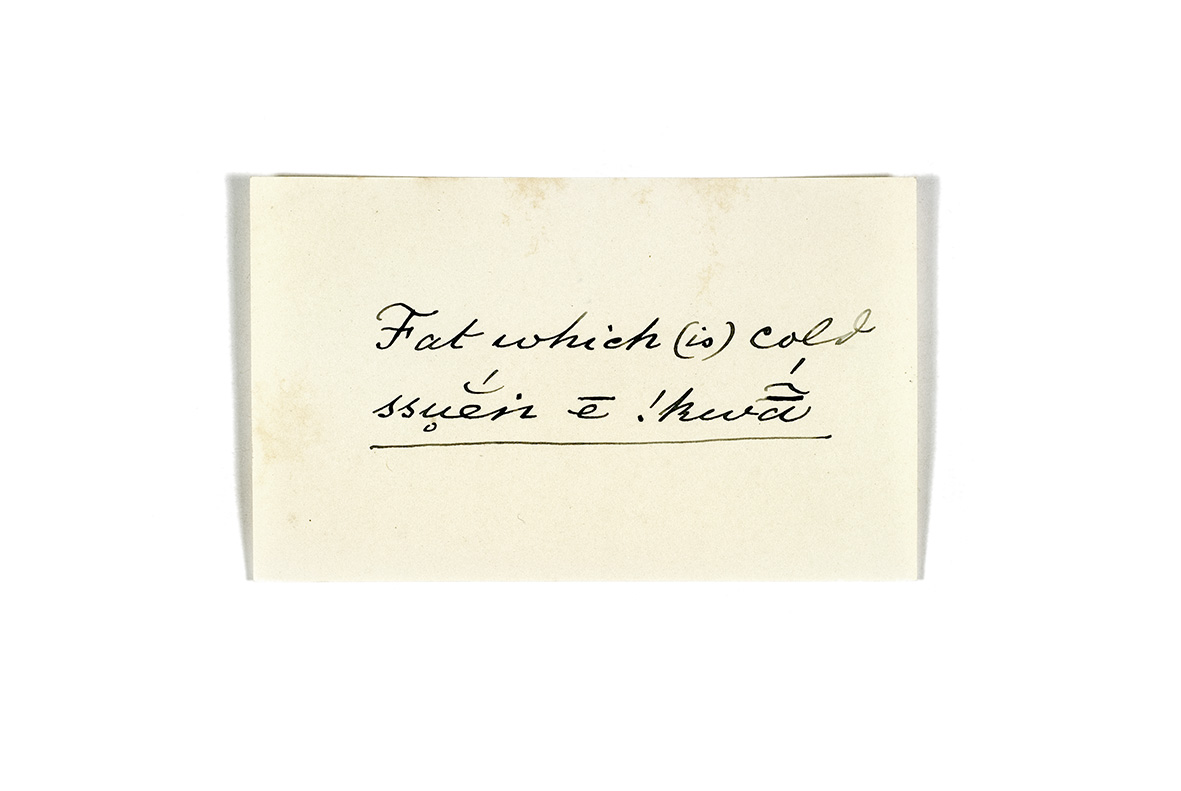 Fat which (is) cold
ssu̥ĕ́n ē !kwã̄́